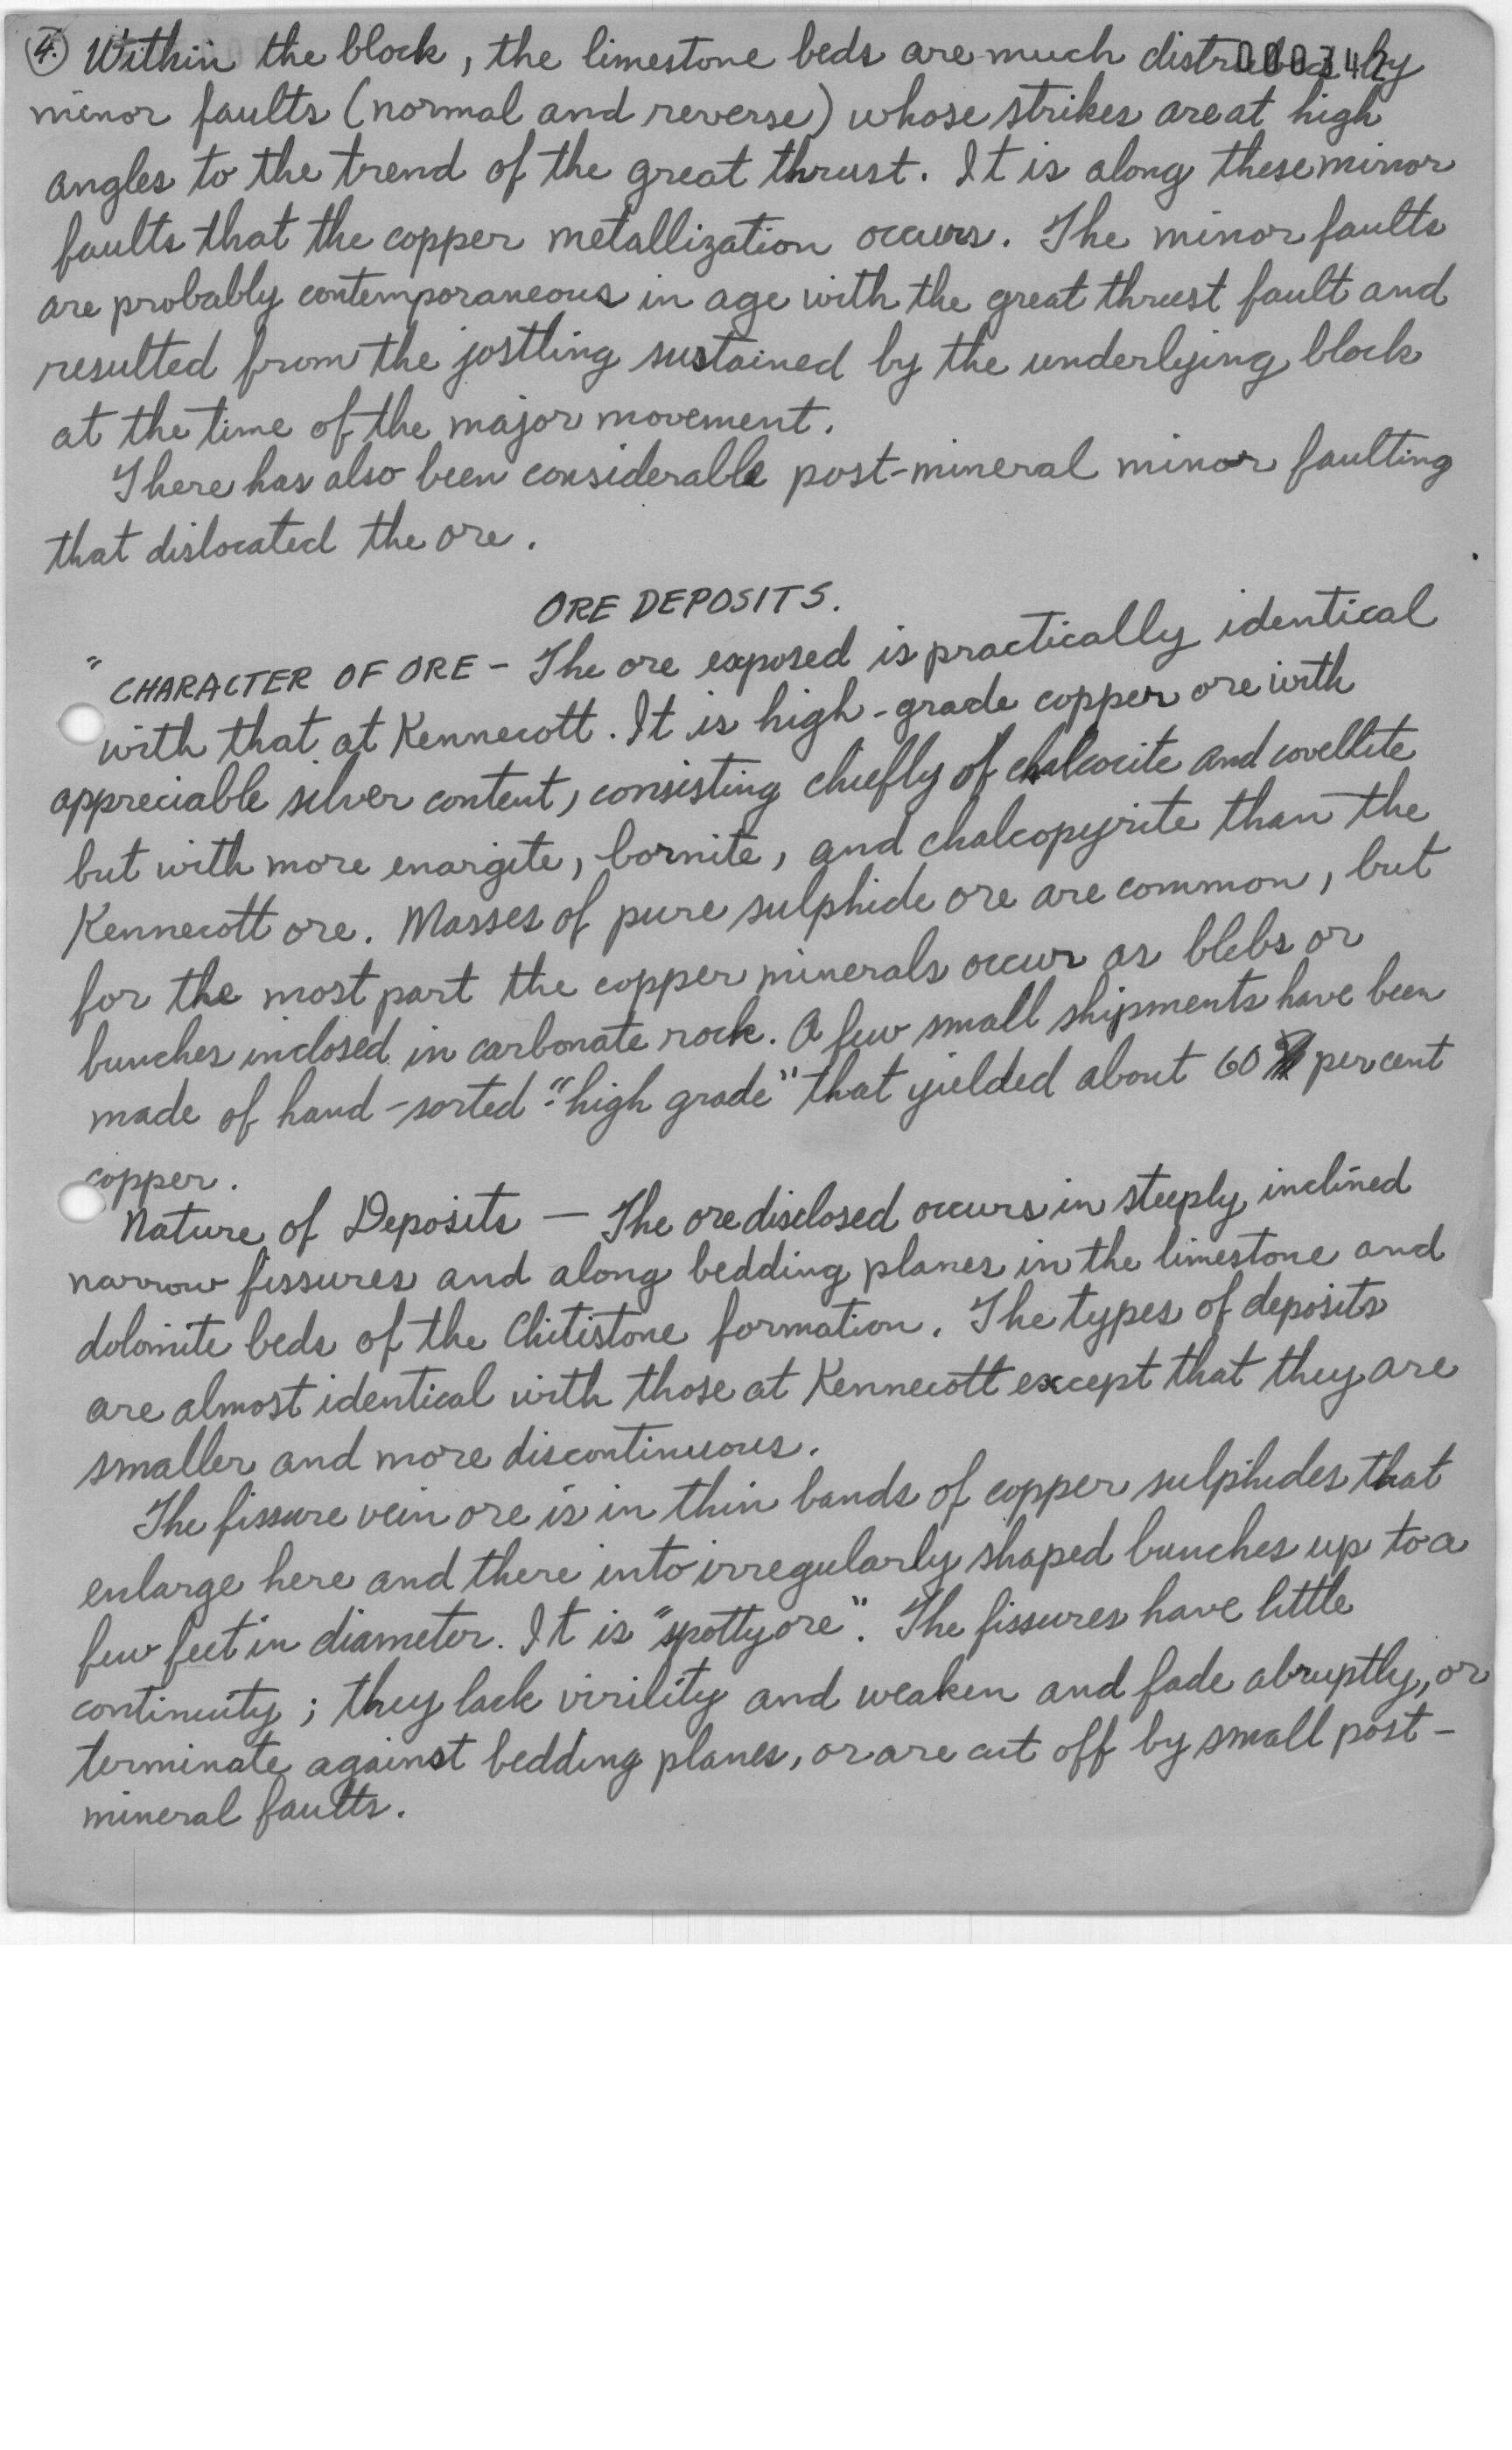 4. Within the block, the limestone beds are much distrubed by
000342
minor faults (normal and reverse) whose strikes are at high
angles to the trend of the great thrust. It is along these minor
faults that the copper metallization occurs. The minor faults
are probably contemporaneous in age with the great thrust fault and
resulted from the jostling sustained by the underlying block
at the time of the major movement.
There has also been considerable post-mineral minor faulting
that dislocated the ore.
ORE DEPOSITS.
" CHARACTER OF ORE - The ore exposed is practically identical
with that at Kennecott. It is high-grade copper ore with
appreciable silver content, consisting chiefly of chalcocite and covellite
but with more enargite, bornite, and chalcopyrite than the
Kennecott ore. Masses of pure sulphide ore are common, but
for the most part the copper minerals occur as blebs or
bunches inclosed in carbonate rock. A few small shipments have been
made of hand-sorted "high grade" that yielded about 60 per cent
copper.
Nature of Deposits — The ore disclosed occurs in steeply inclined
narrow fissures and along bedding planes in the limestone and
dolomite beds of the Chitistone formation. The types of deposits
are almost identical with those at Kennecott except that they are
smaller and more discontinuous.
The fissure vein ore is in thin bands of copper sulphides that
enlarge here and there into irregularly shaped bunches up to a
few feet in diameter. It is "spotty ore". The fissures have little
continuity; they lack virility and weaken and fade abruptly, or
terminate against bedding planes, or are cut off by small post-
mineral faults.